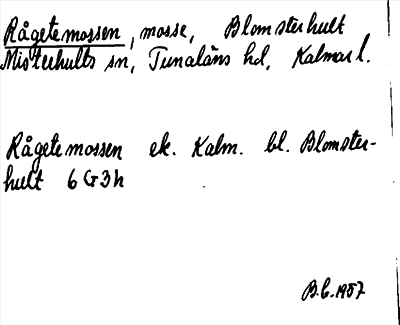 Rågetemossen, mosse, Blomsterhult
Misterhults sn, Tunaläns hd, Kalmar l.
Rågetemossen ek. Kalm. bl. Blomster-
hult 6 G 3 h
B.C. 1957